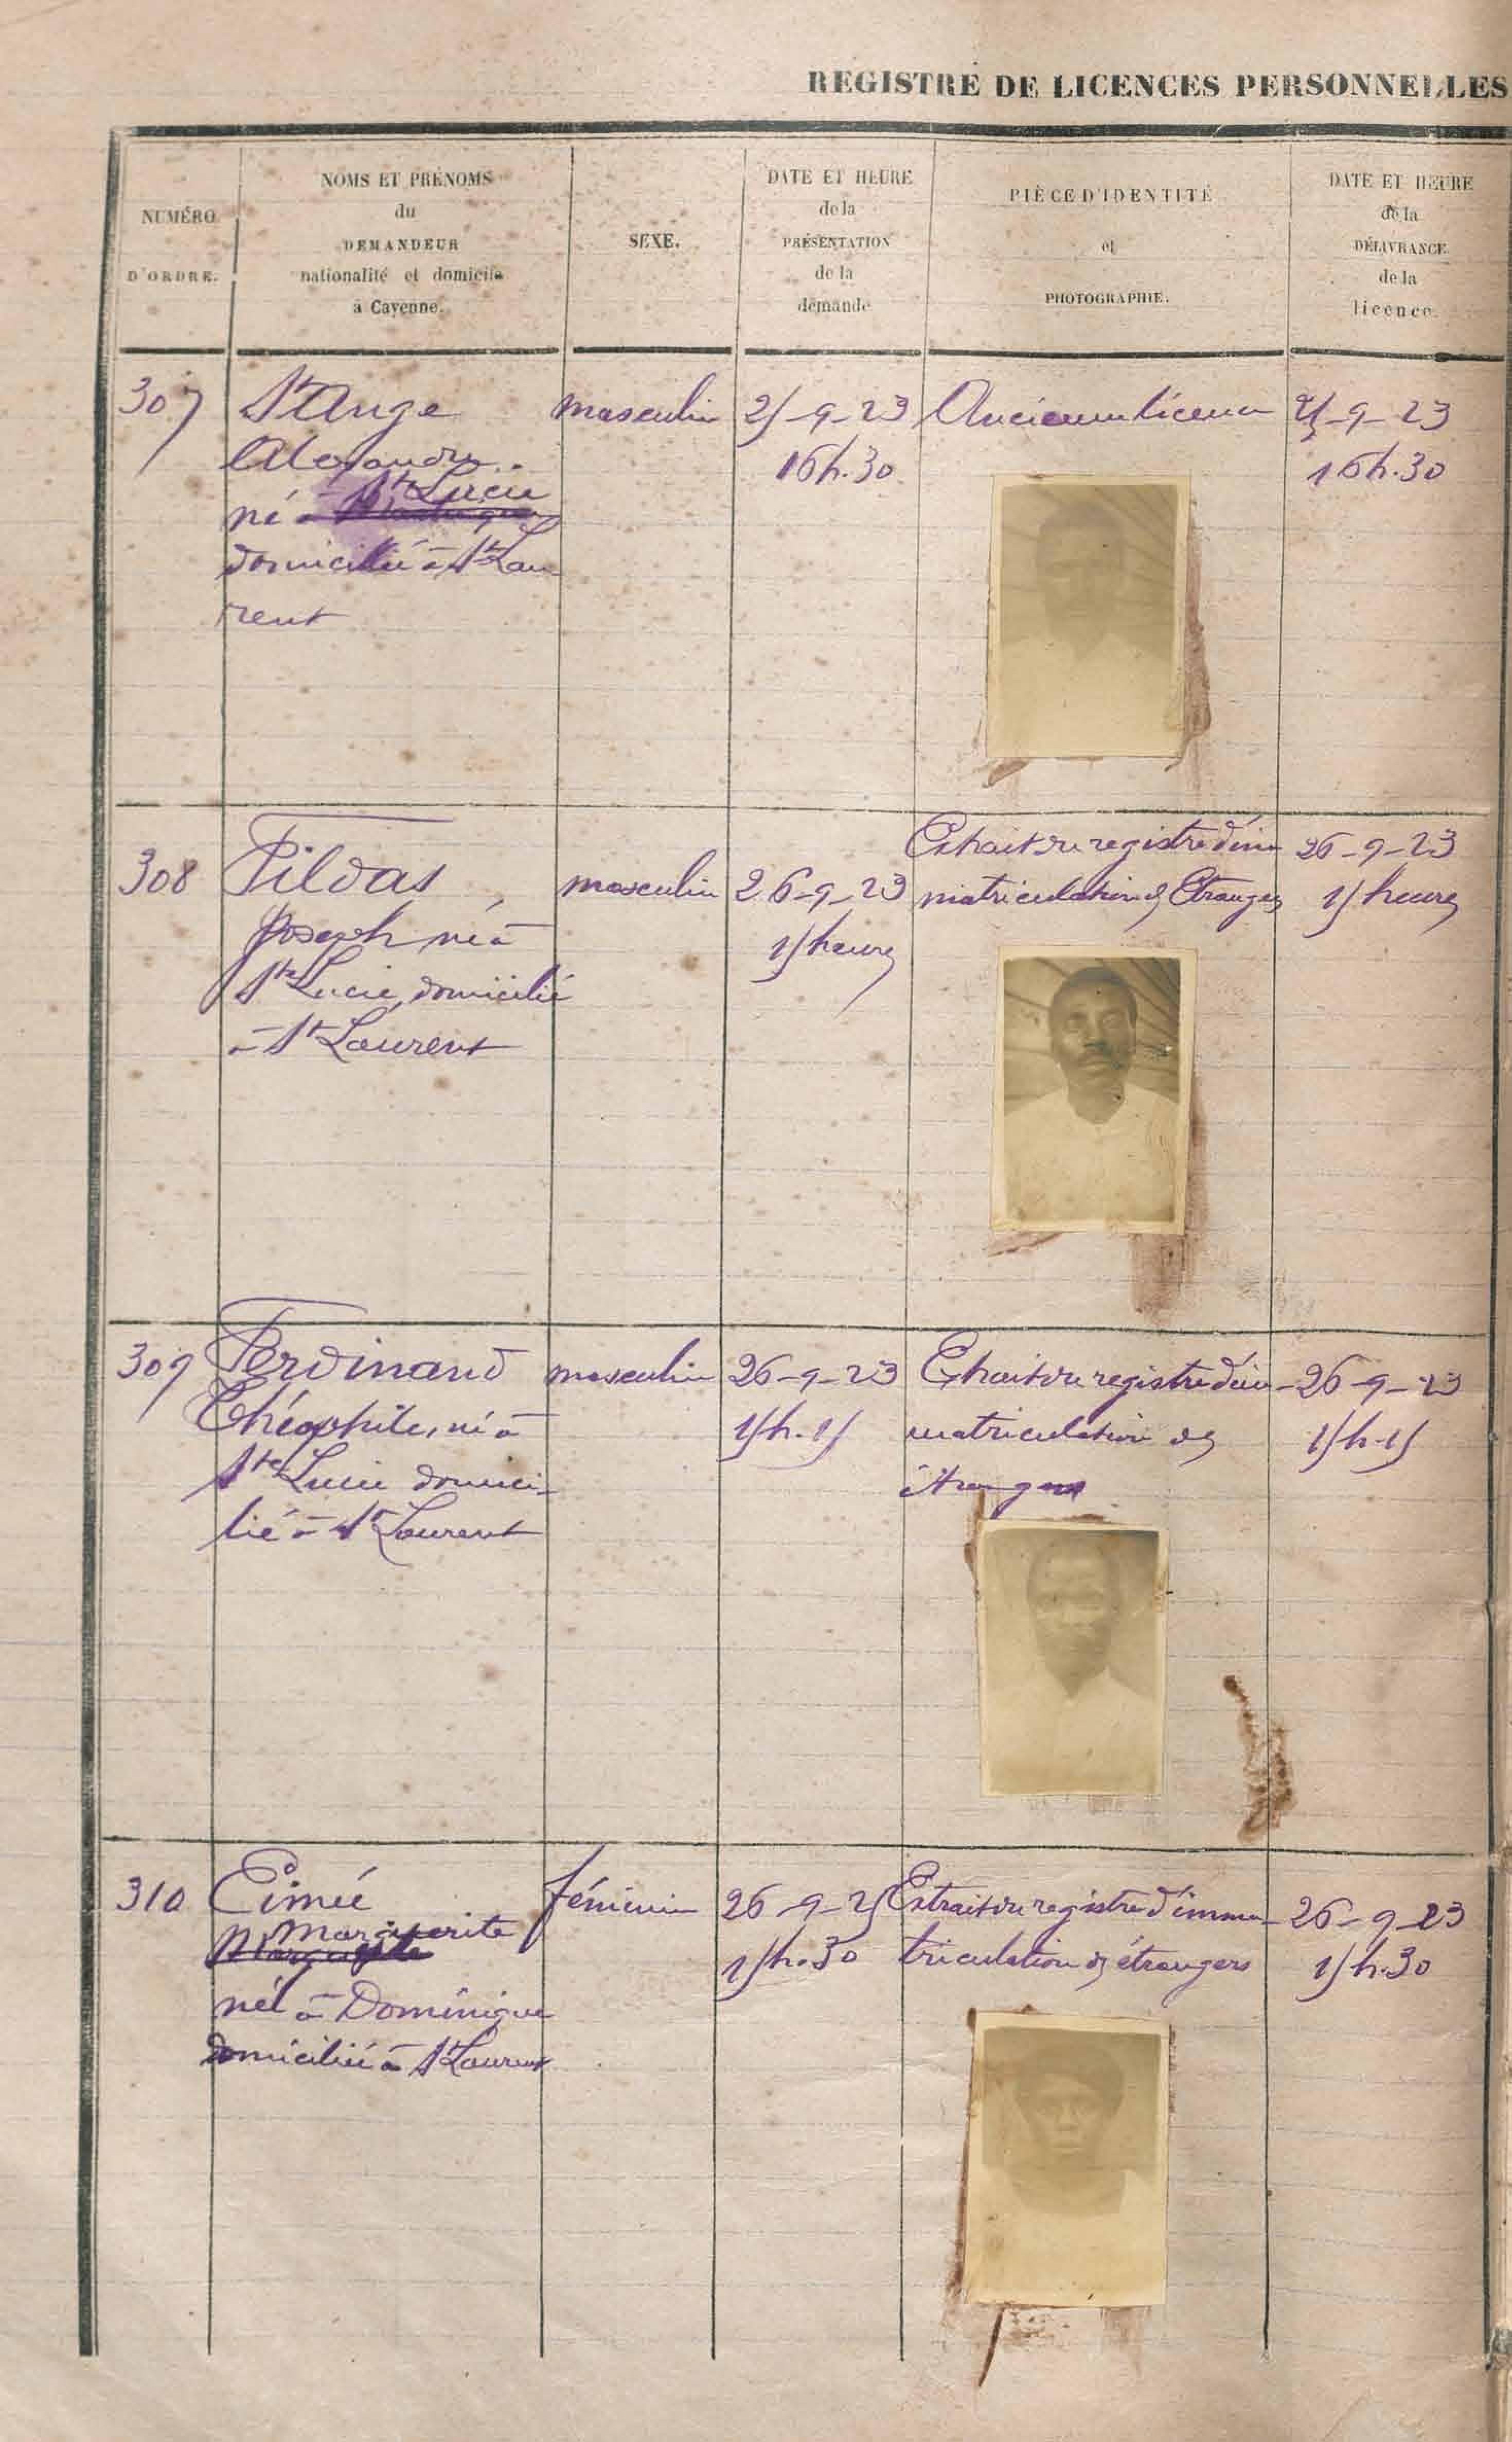 REGISTRE DE LICENCES PERSONNELLES
NUMÉRO
D'ORDRE.
NOMS ET PRÉNOMS
du
DEMANDEUR
nationalité et domicile
à Cayenne.
SEXE.
DATE ET HEURE
de la
PRÉSENTATION
de la
demande
PIÈCE D'IDENTITÉ
et
PHOTOGRAPHIE.
DATE ET HEURE
de la
DÉLIVRANCE
de la
licence.
307
St Ange
Alexandre
Ste Lucie
né à
domicilié à St Lau
rent
masculin
25-9-23
16h.30
Ancienne licence
25-9-23
16h.30
308
Fildas
Joseph né à
Ste Lucie domicilié
à St Laurent
masculin
26-9-23
15 heures
Extrait du registre d'im
matriculation des Etrangers
26-9-23
15 heures
309
Ferdinand
Théophile, né à
Ste Lucie domici-
lié à St Laurent
masculin
26-9-23
15h.15
Extrait du registre d'im-
matriculation des
étrangers
26-9-23
15h.15
310
Eimée
Marguerite
Marguerite
née à Dominique
domiciliée à St Laurent
féminin
26-9-25
15h.30
Extrait du registre d'imma-
triculation des étrangers
26-9-23
15h.30